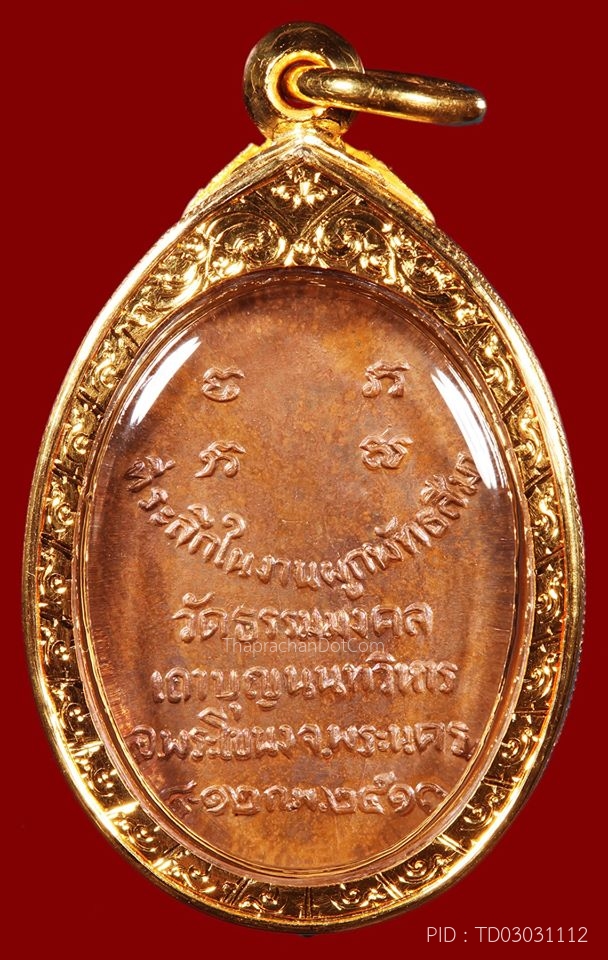 ที่ระลึกในงานผูกพัทธสีมา
วัดธรรมมงคล
ThaprachanDotCom
เถาบุญนนทวิหาร
อ.พระโขนง จ.พระนคร
๘-๑๒ ก.พ. ๒๕๑๐
PID : TD03031112